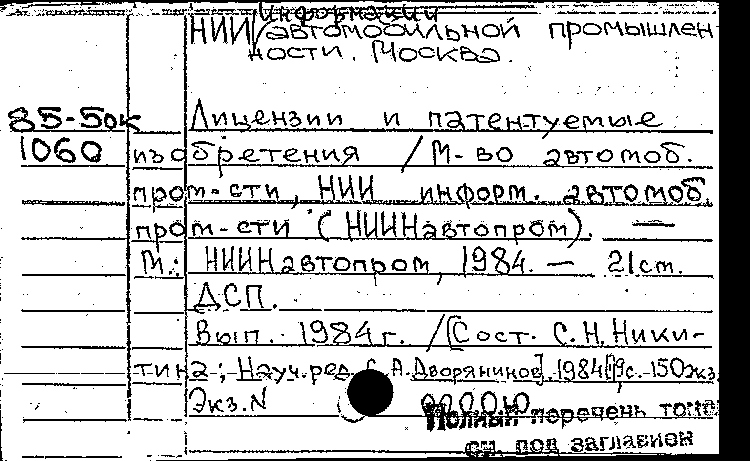 информации
НИИ автомобильной промышлен-
ности. Москва.
85-50к Лицензии и патентуемые
1060 изобретения / М-во автомоб.
пром-сти, НИИ информ. автомоб.
пром-сти (НИИНавтопром). —
М.: НИИНавтопром, 1984. — 21 см.
ДСП.
Вып. 1984 г. / [Сост. С.Н. Ники-
тина; Науч. ред. С.А. Дворянинов]. 1984. с. 150 экз.
Экз. N
Полный перечень томов
см. под заглавием